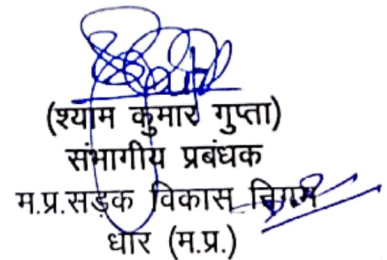 (श्याम कुमार गुप्ता)
संभागीय प्रबंधक
म.प्र.सड़क विकास निगम
धार (म.प्र.)